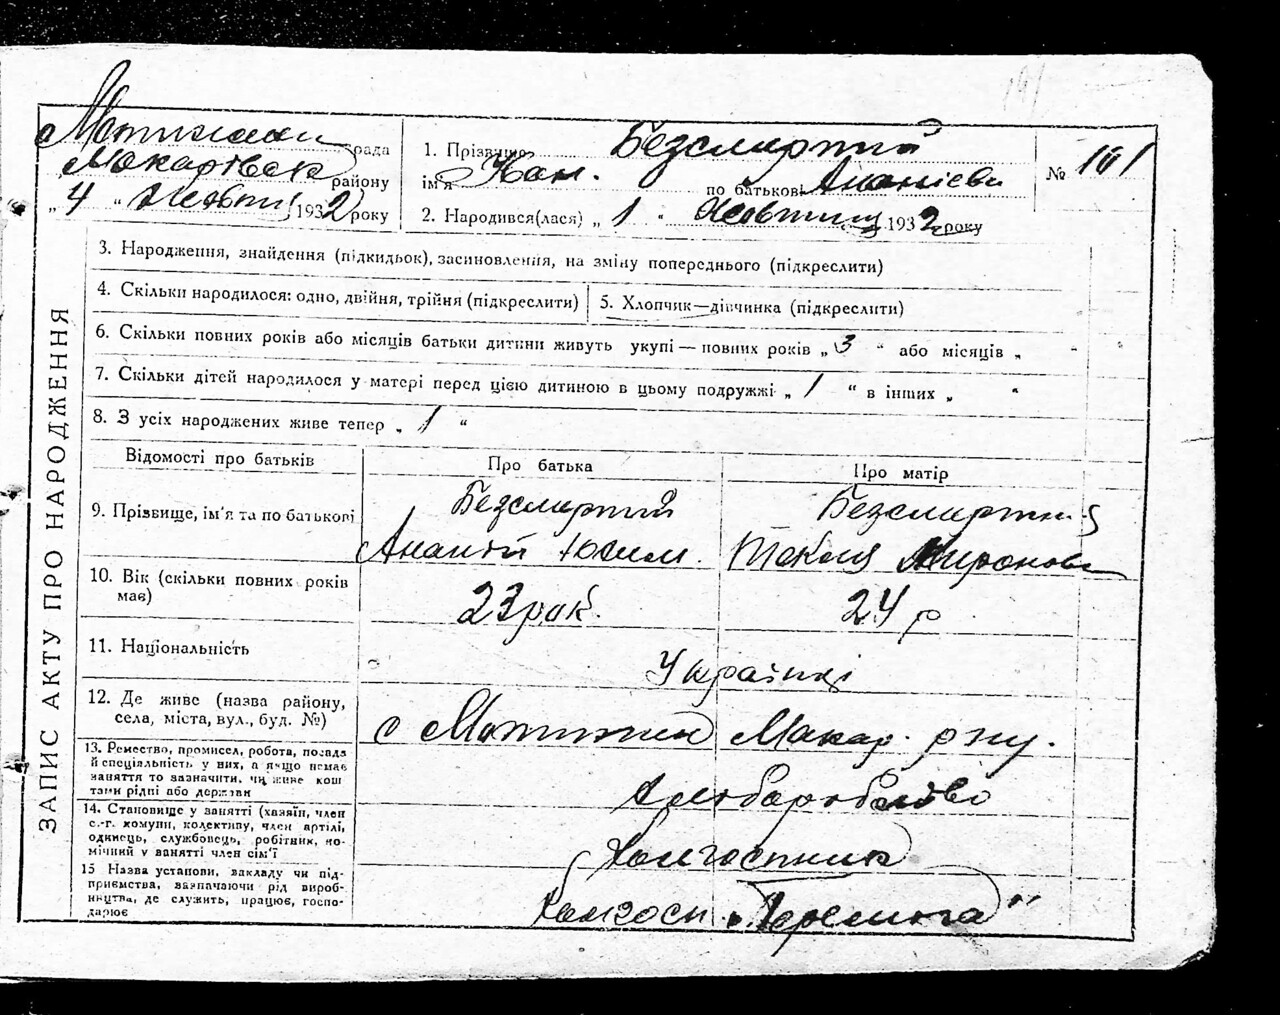 Мотижин рада
Макарівськ району
„ 4 “ Жовтня 1932 року
1. Прізвище Безсмертний
ім'я Іван. по батькові Ананієви
№ 101
2. Народився(лася) „ 1 “ Жовтня 1932 року
ЗАПИС АКТУ ПРО НАРОДЖЕННЯ
3. Народження, знайдення (підкидьок), засиновлення, на зміну попереднього (підкреслити)
4. Скільки народилося: одно, двійня, трійня (підкреслити)
5. Хлопчик—дівчинка (підкреслити)
6. Скільки повних років або місяців батьки дитини живуть укупі — повних років „ 3 “ або місяців „ “
7. Скільки дітей народилося у матері перед цією дитиною в цьому подружжі „ 1 “ в інших „ “
8. З усіх народжених живе тепер „ 1 “
Відомості про батьків
Про батька
Про матір
9. Прізвище, ім'я та по батькові
Безсмертний
Ананій Юхим.
Безсмертня
Текля Миронова
10. Вік (скільки повних років має)
23 рок.
24 р
11. Національність
Українці
12. Де живе (назва району,
села, міста, вул., буд. №)
с Мотижин Макар. р-ну.
13. Ремество, промисел, робота, посада
й спеціяльність у них, а якщо немає
заняття то зазначити, чи живе кош
тами рідні або держави
Хлібаробство
14. Становище у занятті (хазяїн, член
с.-г. комуни, колективу, член артілі,
одинець, службовець, робітник, по-
мічний у занятті член сім'ї
Колгоспник
15 Назва установи, закладу чи під-
приємства, зазначаючи рід вироб-
ництва, де служить, працює, госпо-
дарює
Колгосп „Перемога“